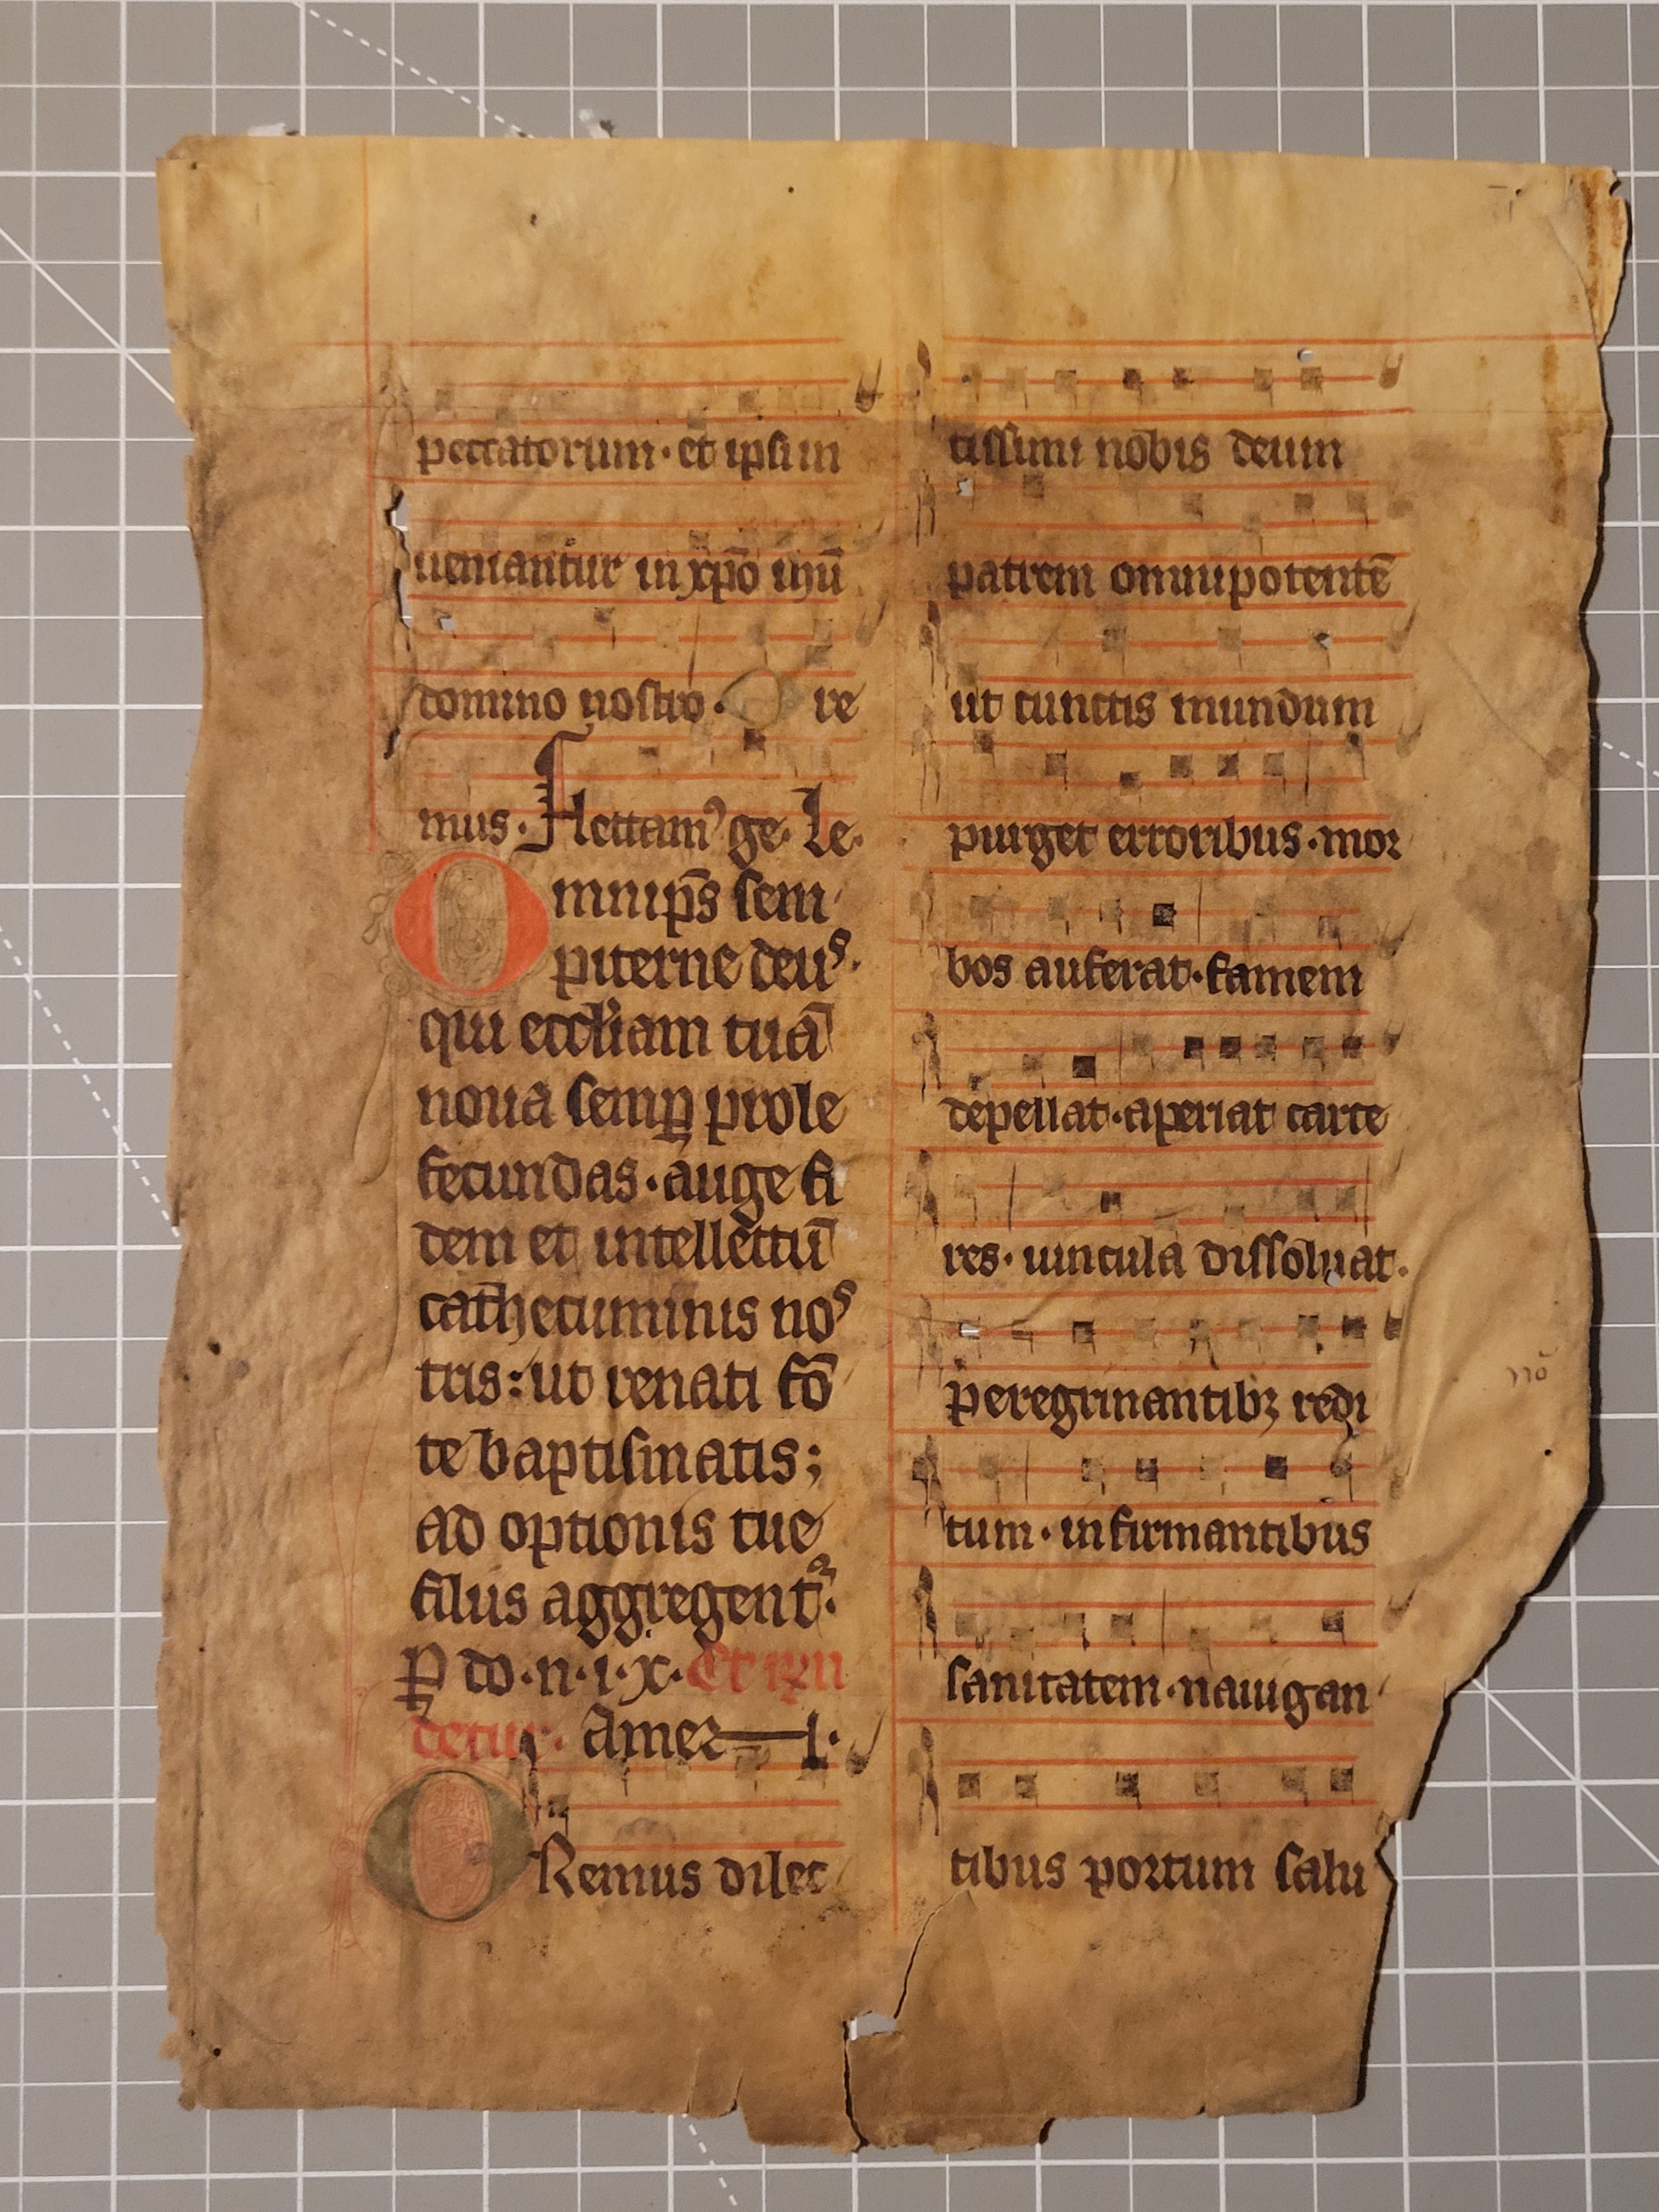 peccatorum · et ipsi in
ueniantur in xp̄o ihū
domino nostro · O re
mus · Flectamꝰ ge · Le ·
Omnip̄s sem
piterne deus ·
qui eccl̄iam tuā
noua semꝑ prole
fecundas · auge fi
dem et intellectū
cathecuminis nos
tris : ut renati fō
te baptismatis ;
ad optionis tue
filiis aggregentᷣ ·
ꝑ do · n · i · x · Et r̄n
detur · Amen ·
ORemus dilec
tissimi nobis deum
patrem omnipotentē
ut cunctis mundum
purget erroribus · mor
bos auferat · famem
depellat · aperiat carce
res · uincula dissoluat ·
peregrinantibꝫ redi
tum · infirmantibus
sanitatem · nauigan
tibus portum salu
nō